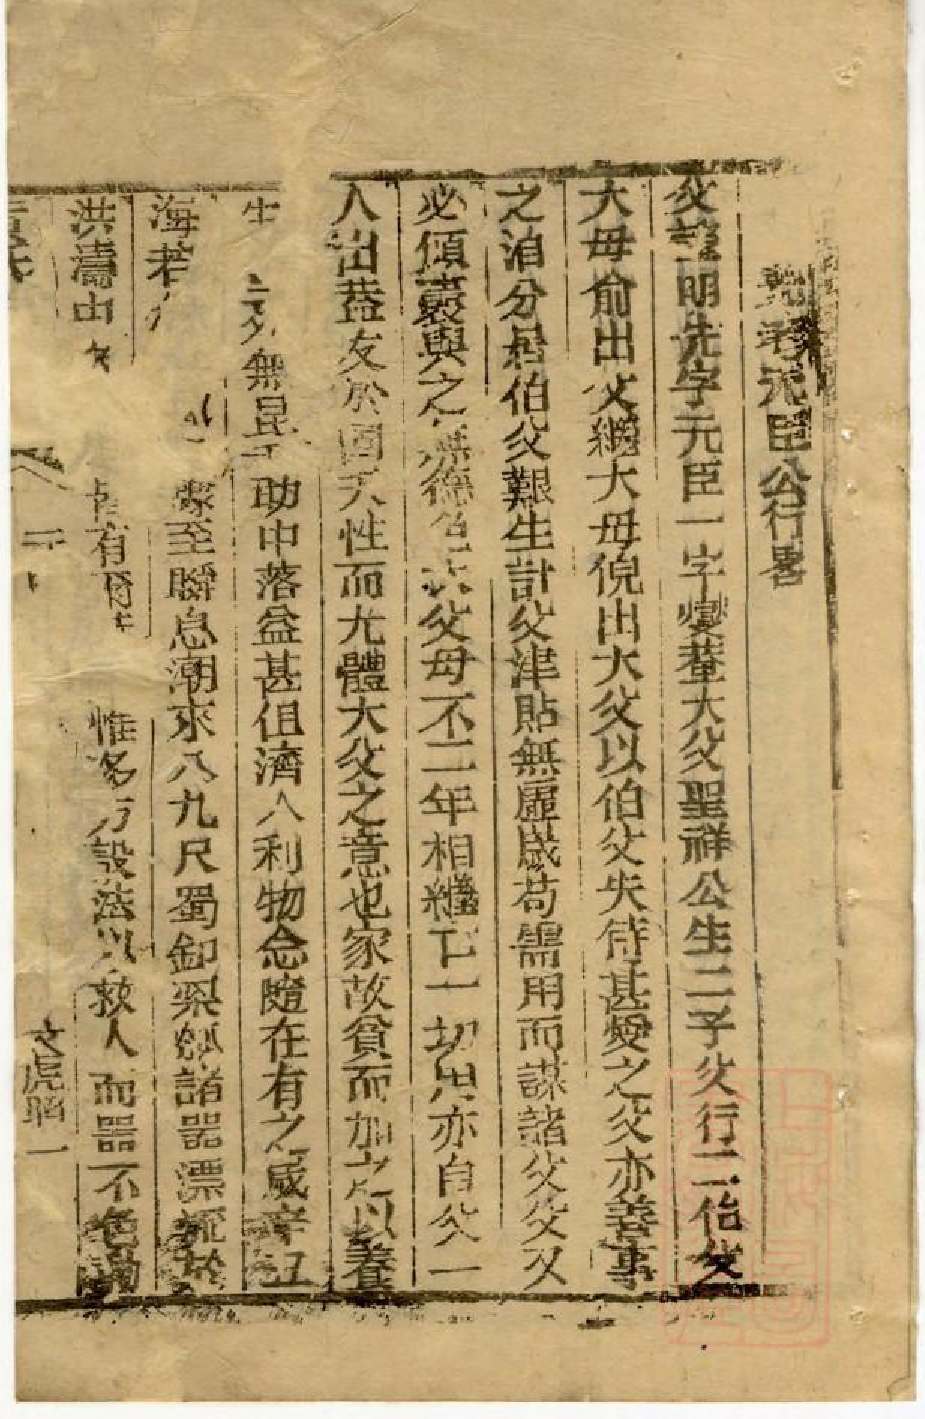 先考元臣公行畧
父諱明先字元臣一字燮菴大父聖祥公生二子父行二伯父
大母俞出父繼大母倪出大父以伯父失恃甚愛之父亦善事
之洎分居伯父艱生計父津貼無虛歲苟需用而謀諸父父又
必傾囊與之無德色大父母不二年相繼亡一切皆亦自父一
人出葢友於固天性而尤體大父之意也家故貧而加之以養
生 無昆 助中落益甚但濟人利物念隨在有之歲辛
海若 至瞬息潮來八九尺蜀 諸器漂流於
洪濤中 有 惟多方設法以救人而器不
二 文虎 一